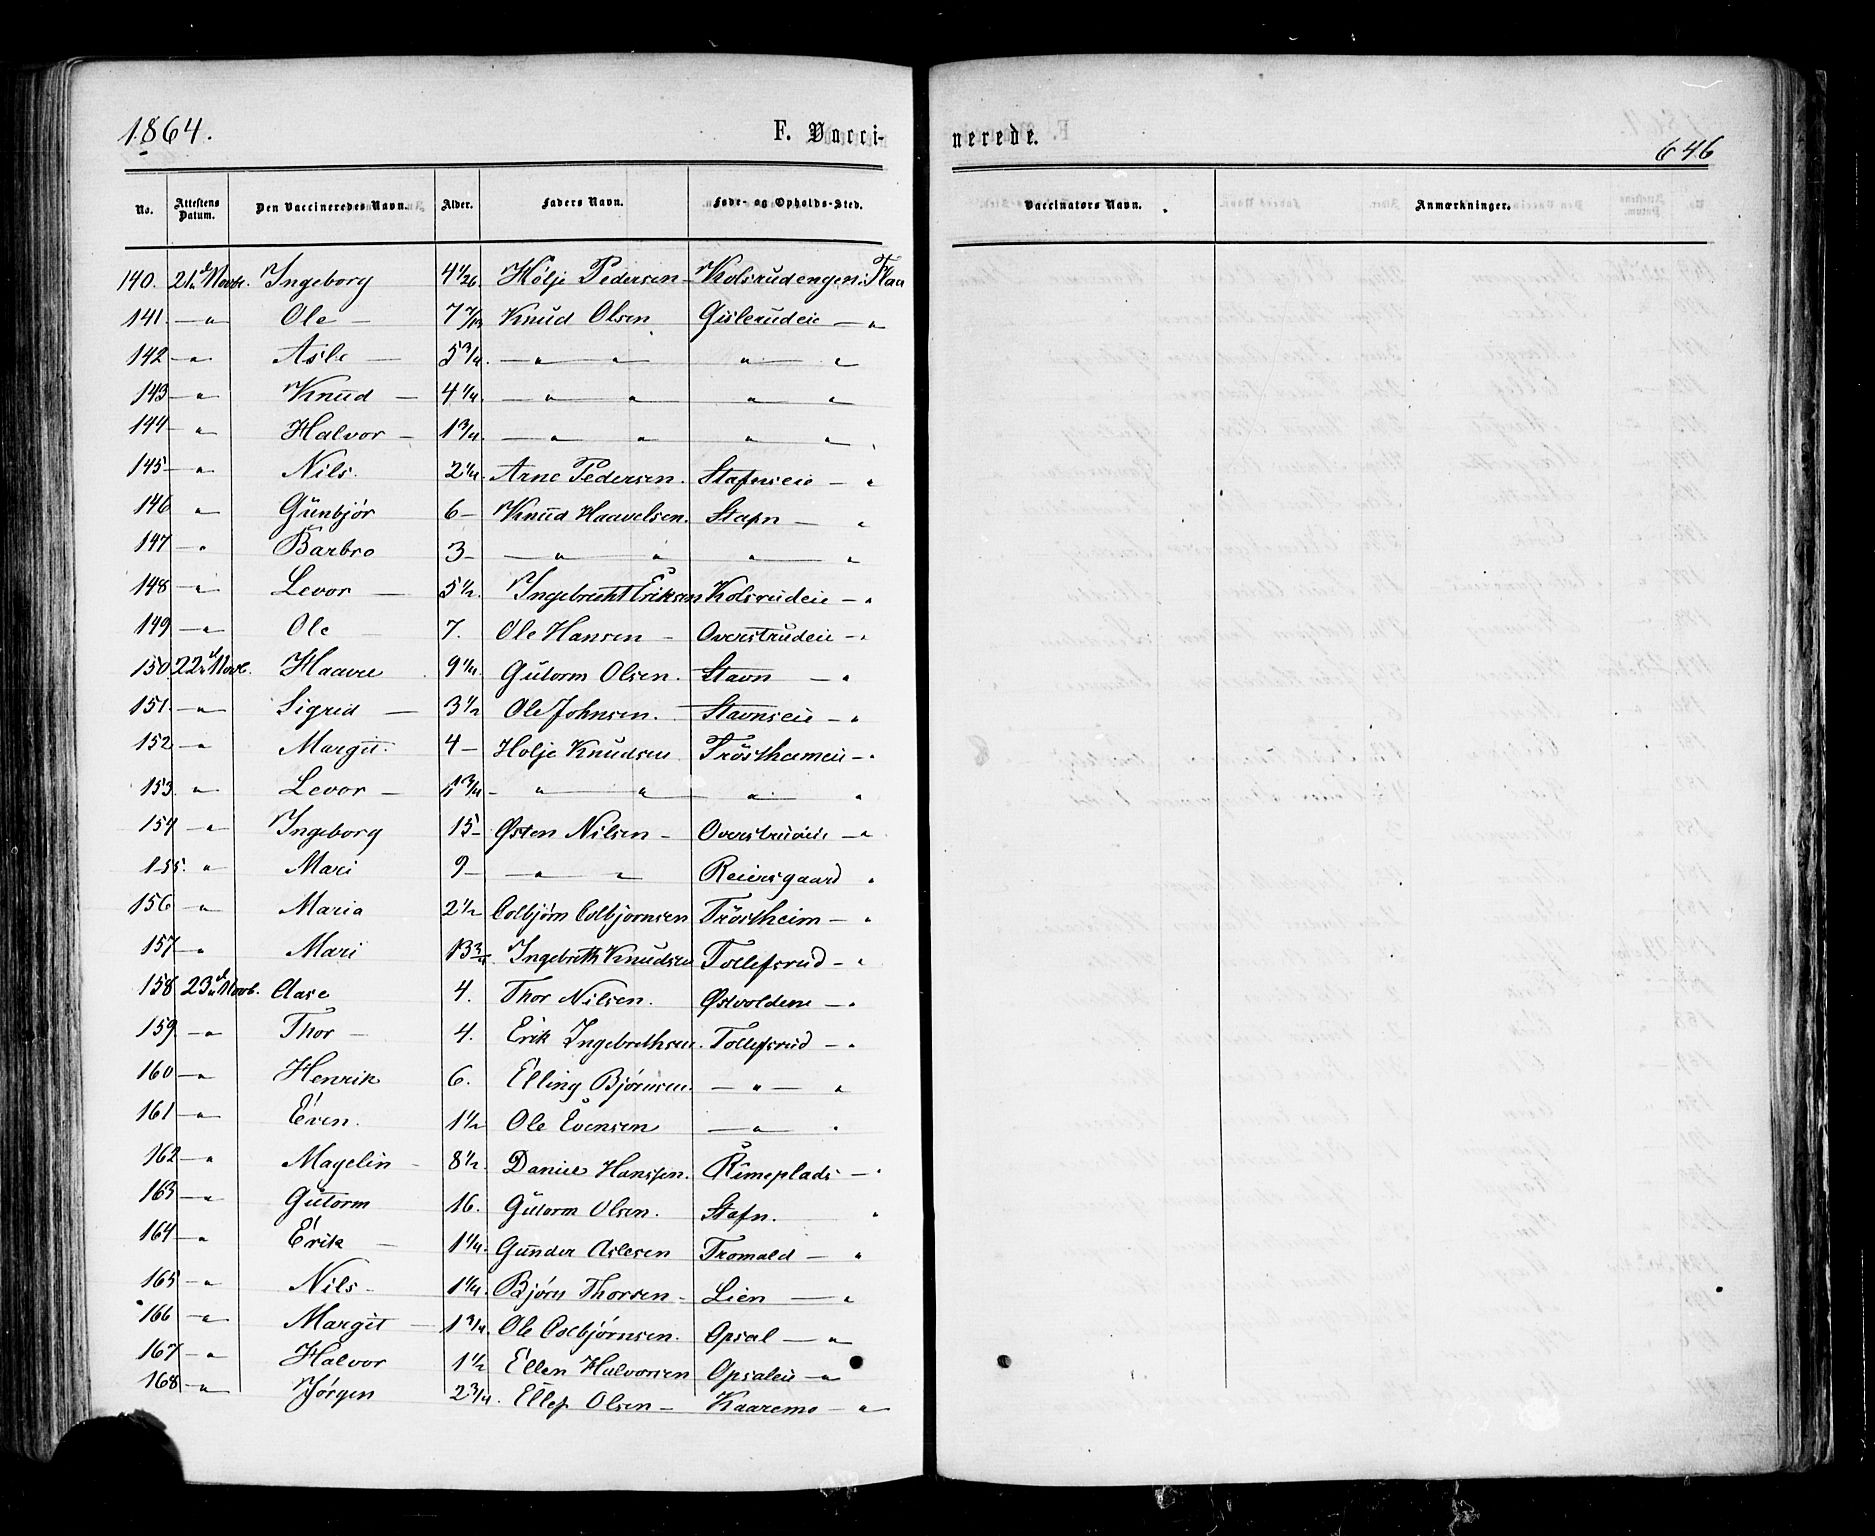 1864.
F. Vacci-
nerede.
646
No. Attestens Datum. Den Vaccineredes Navn. Alder. Faders Navn. Føde- og Opholds-Sted. Vaccinators Navn. Anmærkninger.
140. 21de Novbr. Ingeborg 4 1/26. Holje Pedersen - Kolsrudengen i Flaa
141. — " Ole — 7 7/12 Knud Olsen Gislerudeie — "
142 — " Asle — 5 3/4. — " " " "
143 — " Knud — 4 1/4. — " " " "
144 — " Halvor - 1 3/4. — " " " "
145 — " Nils. 2 1/4. Arne Pedersen. Stafnseie — "
146 " Gunbjør 6 - Knud Haavelsen. Stafn — "
147 — " Barbro 3 - — " " " "
148 — " Levor — 5 1/2. Ingebrecht Eriksen Kolsrudeie — "
149 — " Ole — 7. Ole Hansen - Overstrudeie — "
150 22de Novb. Haavel 9 1/4. Gutorm Olsen. Stavn — "
151. — " Sigrid — 3 1/2 Ole Johnsen. Stavnseie — "
152 — " Margit. 4 — Holje Knudsen Trösthemeie — "
153. — " Levor — 1 3/4 - " " " "
154 — " Ingeborg 15 - Østen Nilsen - Overstrudeie — "
155. " Mari 9 - — " " Reiersgaard "
156 — " Maria 2 1/2 Colbjørn Colbjørnsen Tröstheim — "
157 — " Mari 13 3/4 Ingebreth Knudsen Tollefsrud — "
158 23de Novb. Aase 4. Thor Nilsen. Østvoldene — "
159. — " Thor — 4. Erik Ingebrethsen. Tollefsrud — "
160 — " Henrik 6. Elling Bjørnsen. — " — "
161 — " Even. 1 1/2 Ole Evensen — " "
162 — " Magelin - 8 1/2. Daniel Hanssen. Rimeplads — "
163 — " Gutorm 16. Gutorm Olsen. Stafn. "
164 — " Erik — 1 1/4. Gunder Aslesen Tromald — "
165 — " Nils - 1 1/4. Bjørn Thorsen - Lien — "
166 — " Margit — 1 3/4. Ole Colbjørnsen. Opsal — "
167 — " Halvor 1 1/2 Ellen Halvorsen Opsaleie — "
168 — " Jørgen 2 3/4. Ellef Olsen — Kaaremo — "